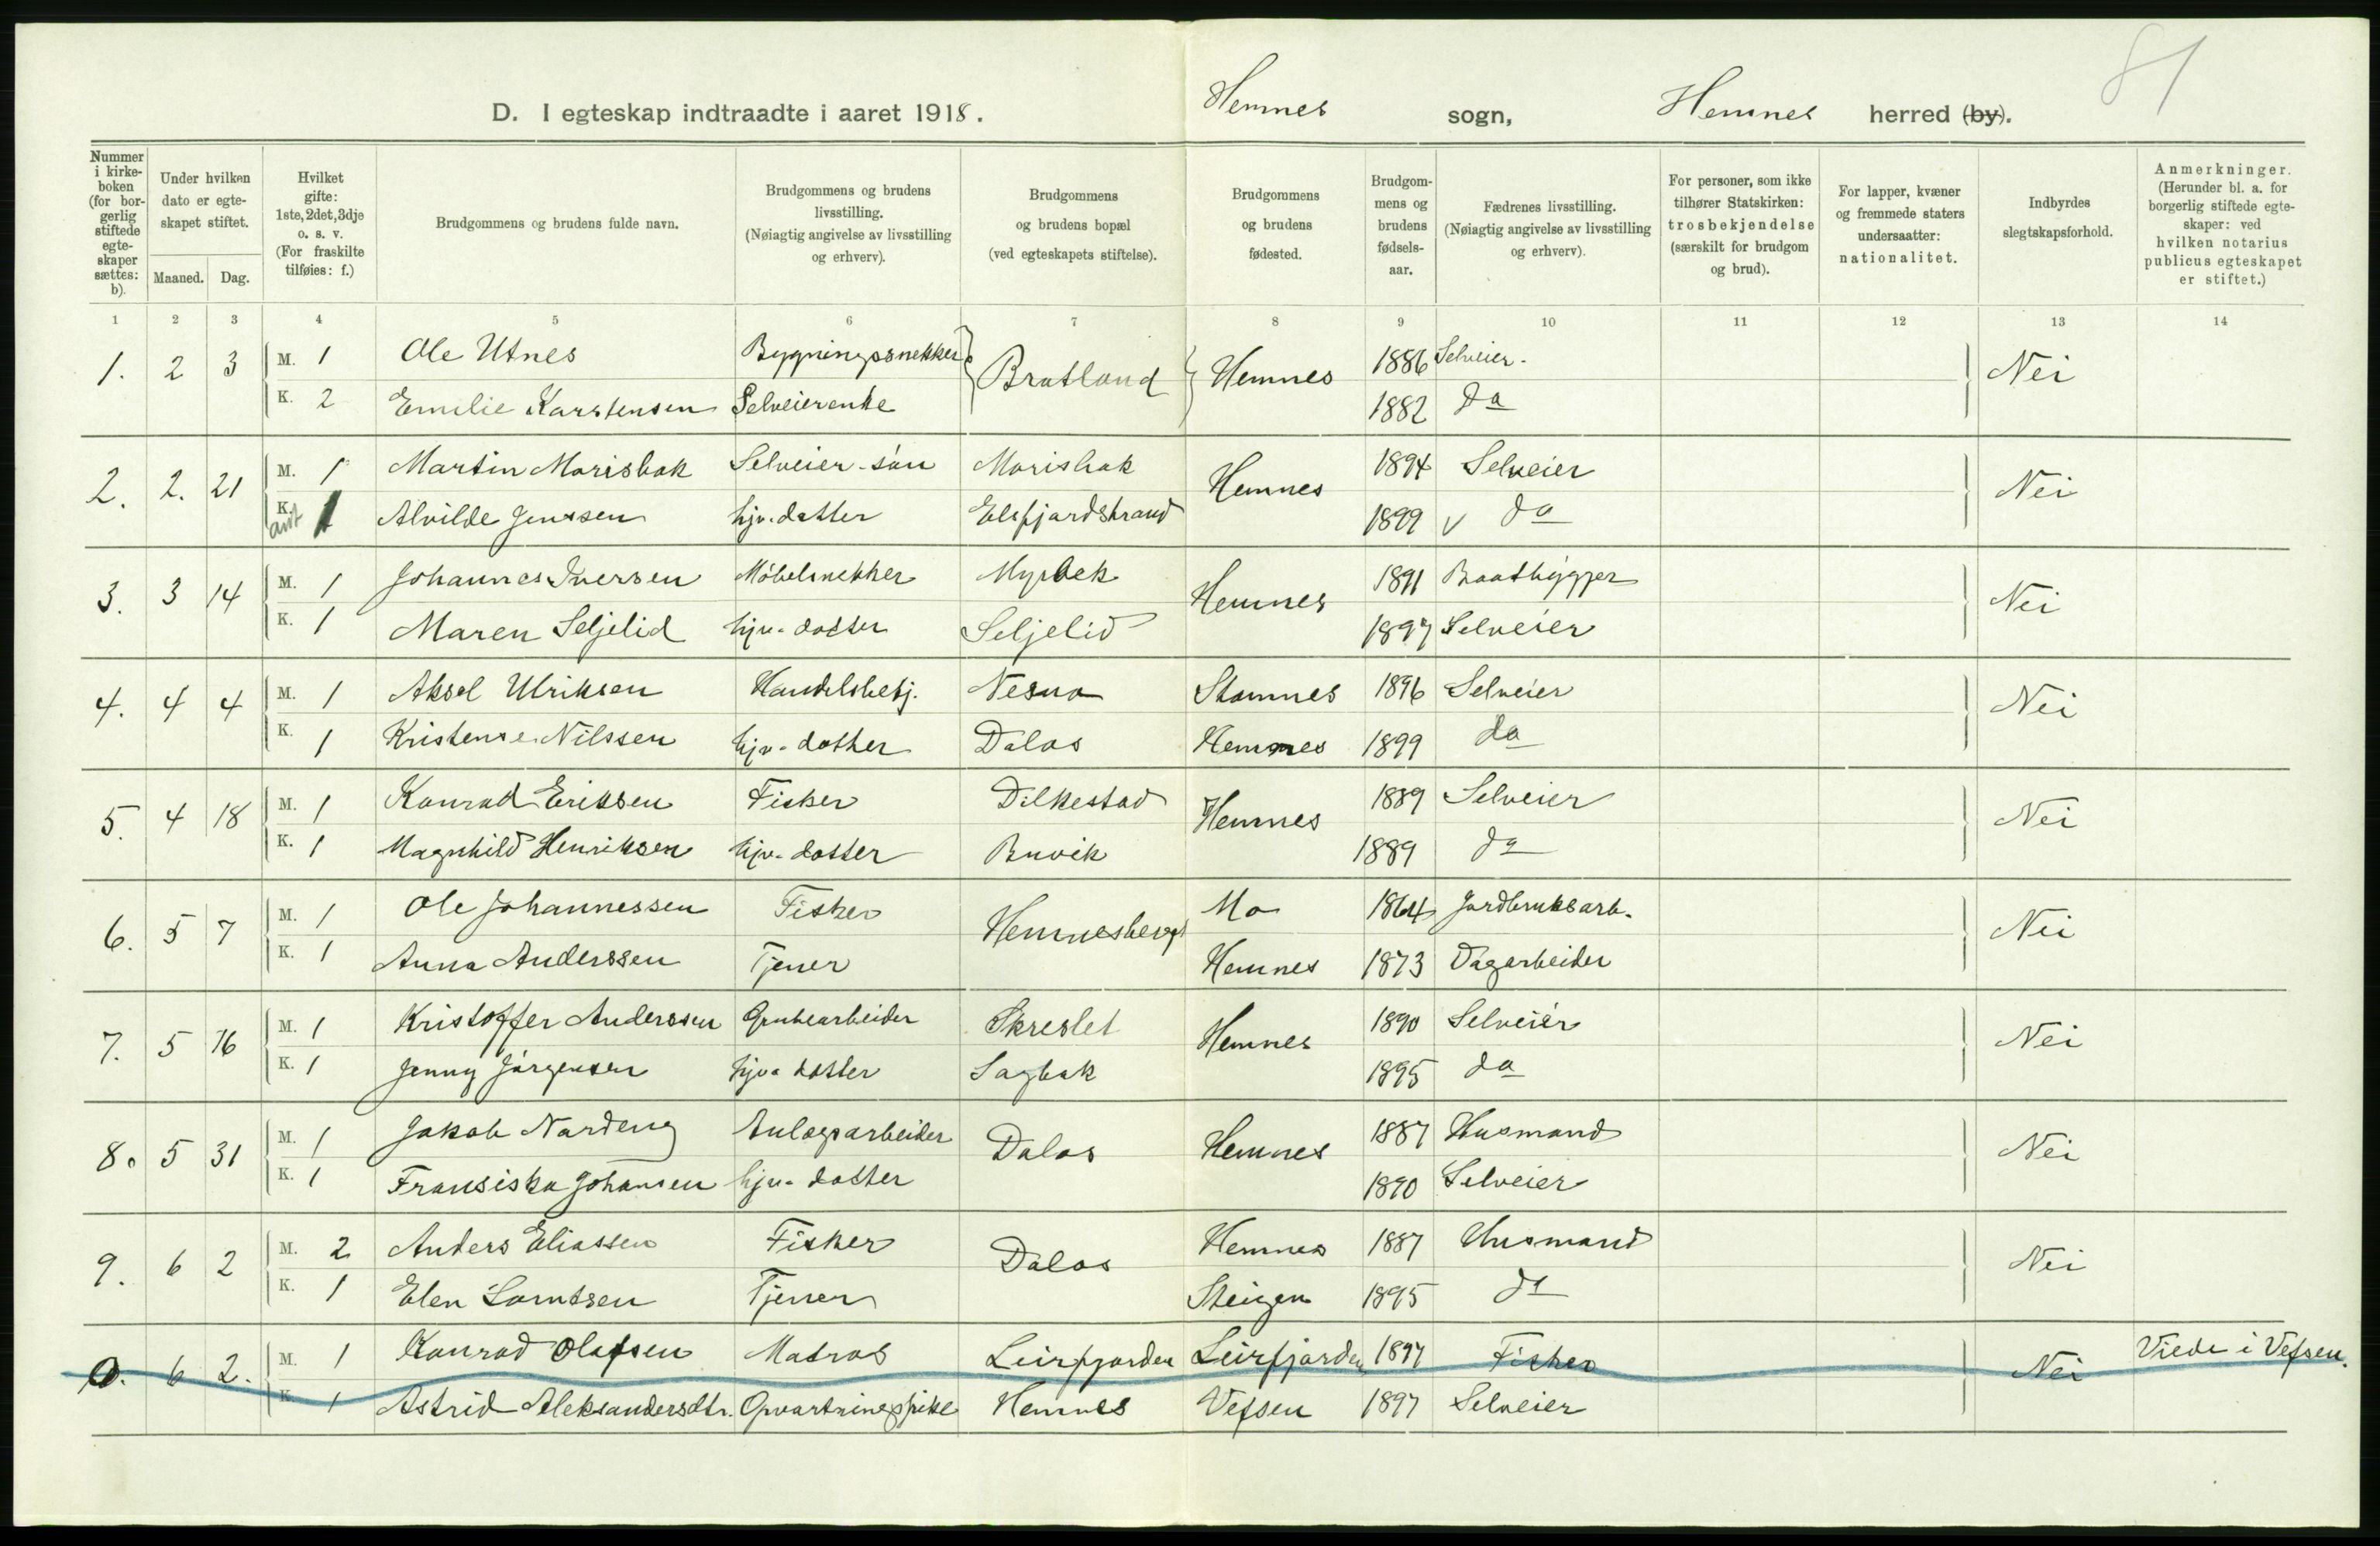 81
D. I egteskap indtraadte i aaret 1918. Hemnes sogn, Hemnes herred (by).
Nummer i kirkeboken (for borgerlig stiftede egteskaper sættes: b).
Under hvilken dato er egteskapet stiftet.
Maaned. Dag.
Hvilket gifte: 1ste, 2det, 3dje o. s. v. (For fraskilte tilføies: f.)
Brudgommens og brudens fulde navn.
Brudgommens og brudens livsstilling. (Nøiagtig angivelse av livsstilling og erhverv).
Brudgommens og brudens bopæl (ved egteskapets stiftelse).
Brudgommens og brudens fødested.
Brudgommens og brudens fødselsaar.
Fædrenes livsstilling. (Nøiagtig angivelse av livsstilling og erhverv).
For personer, som ikke tilhører Statskirken: trosbekjendelse (særskilt for brudgom og brud).
For lapper, kvæner og fremmede staters undersaatter: nationalitet.
Indbyrdes slegtskapsforhold.
Anmerkninger. (Herunder bl. a. for borgerlig stiftede egteskaper: ved hvilken notarius publicus egteskapet er stiftet.)
1 2 3 4 5 6 7 8 9 10 11 12 13 14
1. 2 3 M. 1 Ole Utnes Bygningssnekker Bratland Hemnes 1886 Selveier. Nei
K. 2 Emilie Karstensen Selveierenke 1882 do
2. 2. 21 M. 1 Martin Morisbak Selveier-søn Morisbak Hemnes 1894 Selveier Nei
K. 1 Alvilde Jenssen hjv. datter Elsfjordstrand 1899 v do
3. 3 14 M. 1 Johannes Iversen Møbelsnekker Myrbek Hemnes 1891 Baatbygger Nei
K. 1 Maren Seljelid hjv. datter Seljelid 1897 Selveier
4. 4 4 M. 1 Aksel Ulriksen Handelsbetj. Nesna Stamnes 1896 Selveier Nei
K. 1 Kristense Nilssen hjv. datter Dalos Hemnes 1899 do
5. 4 18 M. 1 Konrad Eriksen Fisker Dilkestad Hemnes 1889 Selveier Nei
K. 1 Magnhild Henriksen hjv. datter Buvik 1889 do
6. 5 7 M. 1 Ole Johannessen Fisker Hemnesberget Mo 1864 Jordbruksarb. Nei
K. 1 Anna Anderssen Tjener Hemnes 1873 Dagarbeider
7. 5 16 M. 1 Kristoffer Anderssen Grubearbeider Skreslet Hemnes 1890 Selveier Nei
K. 1 Jenny Jørgensen hjv. datter Sagbak 1895 do
8. 5 31 M. 1 Jakob Nordeng Anlægsarbeider Dalos Hemnes 1887 Husmand Nei
K. 1 Fransiska Johansen hjv. datter 1890 Selveier
9. 6 2 M. 2 Anders Eliassen Fisker Dalos Hemnes 1887 Husmand Nei
K. 1 Elen Lorntsen Tjener Steigen 1895 do
0. 6 2. M. 1 Konrad Olafsen Matros Leirfjorden Leirfjorden 1897 Fisker Nei Viede i Vefsen.
K. 1 Astrid Aleksandersdtr. Opvartningspike Hemnes Vefsen 1897 Selveier